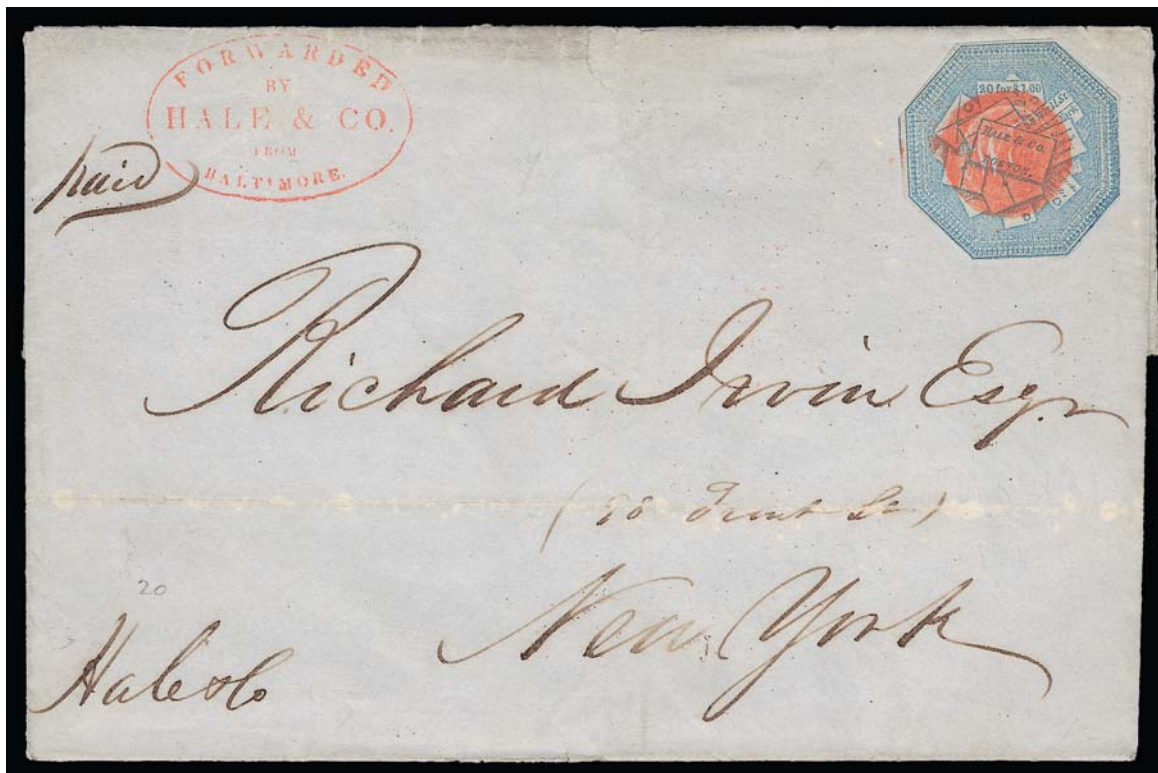 FORWARDED
BY
HALE & CO.
FROM
BALTIMORE.
paid
20 for $1.00
HALE & CO.
BOSTON.
Richard Irvin Esqr
(98 Front St)
New York
20
Hale & Co